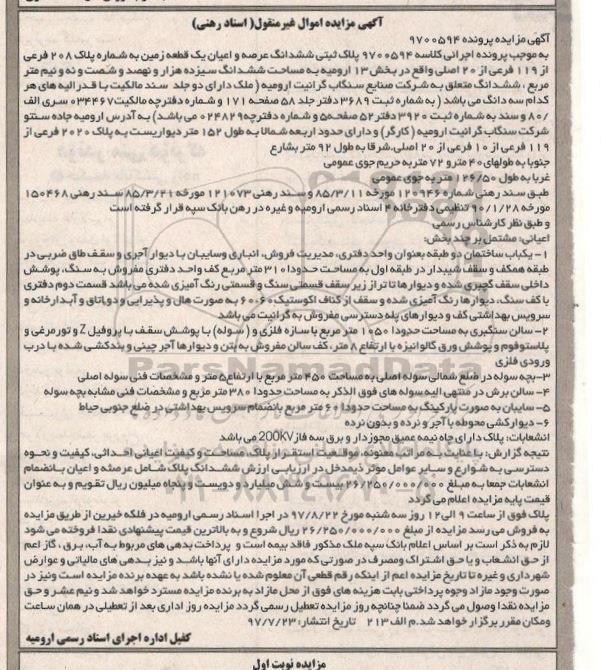 آگهی مزایده اموال غیرمنقول( اسناد رهنی)
آگهی مزایده پرونده ۹۷۰۰۵۹۴
به موجب پرونده اجرائی کلاسه ۹۷۰۰۵۹۴ پلاک ثبتی ششدانگ عرصه و اعیان یک قطعه زمین به شماره پلاک ۲۰۸ فرعی
از ۱۱۹ فرعی از ۲۰ اصلی واقع در بخش ۱۳ ارومیه به مساحت ششدانگ سیزده هزار و نهصد و شصت و نه و نیم متر
مربع ، ششدانگ متعلق به شرکت صنایع سنگاب گرانیت ارومیه ( ملک دارای دو جلد سند مالکیت با قدر الیه های هر
کدام سه دانگ می باشد ( به شماره ثبت ۳۶۸۹ دفتر جلد ۵۸ صفحه ۱۷۱ و شماره دفترچه مالکیت ۰۳۴۴۶۷ سری الف
/۸۰ و سند به شماره ثبت ۳۹۲۰ دفتر ۵۲ صفحه ۵ و شماره دفترچه ۰۲۴۸۲۹ می باشد) به آدرس ارومیه جاده سنتو
شرکت سنگاب گرانیت ارومیه ( کارگر) و دارای حدود اربعه شمالا به طول ۱۵۲ متر دیواریست به پلاک ۲۰۲۰ فرعی از
۱۱۹ فرعی از ۱۰ فرعی از ۲۰ اصلی.شرقا به طول ۹۲ متر بشارع
جنوبا به طولهای ۴۰ متر و ۷۲ متر به حریم جوی عمومی
غربا به طول ۱۲۶/۵۰ متر به جوی عمومی
طبق سند رهنی شماره ۱۲۰۹۴۶ مورخه ۸۵/۳/۱۱ و سند رهنی ۱۲۱۰۷۳ مورخه ۸۵/۳/۲۱ سند رهنی ۱۵۰۴۶۸
مورخه ۹۰/۱/۲۸ تنظیمی دفترخانه ۴ اسناد رسمی ارومیه و غیره در رهن بانک سپه قرار گرفته است
و طبق نظر کارشناس رسمی
اعیانی: مشتمل بر چند بخش:
۱- یکباب ساختمان دو طبقه بعنوان واحد دفتری، مدیریت فروش، انباری وسایبان با دیوار آجری و سقف طاق ضربی در
طبقه همکف و سقف شیبدار در طبقه اول به مساحت حدودا ۳۱۰ متر مربع کف واحد دفتری مفروش به سنگ، پوشش
داخلی سقف گچبری شده و دیوارها تا تراز زیر سقف قسمتی سنگ و قسمتی رنگ آمیزی شده می باشد قسمت دوم دفتری
با کف سنگ، دیوارها رنگ آمیزی شده و سقف از کناف اکوستیک ۶۰*۶۰ به صورت هال و پذیرایی و دو اتاق و آبدارخانه و
سرویس بهداشتی کف و دیوارهای پله دسترسی مفروش به گرانیت می باشد
۲- سالن سنگبری به مساحت حدودا ۱۰۵۰ متر مربع با سازه فلزی و ( سوله) با پوشش سقف با پروفیل Z و تور مرغی و
پلاستوفوم و پوشش ورق گالوانیزه با ارتفاع ۸ متر، کف سالن مفروش به بتن و دیوارها آجر چینی و بندکشی شده با درب
ورودی فلزی
۳-بچه سوله در ضلع شمالی سوله اصلی به مساحت ۴۵۰ متر مربع با ارتفاع ۵ متر و مشخصات فنی سوله اصلی
۴- سالن برش در منتهی الیه سوله های فوق الذکر به مساحت حدودا ۳۸۰ متر مربع و مشخصات فنی مشابه بچه سوله
۵- سایبان به صورت پارکینگ به مساحت حدودا ۶۰ متر مربع بانضمام سرویس بهداشتی در ضلع جنوبی حیاط
۶- دیوارکشی محوطه با آجر و نرده و بدون نرده
انشعابات: پلاک دارای چاه نیمه عمیق مجوزدار و برق سه فاز 200KV می باشد
نتیجه گزارش: با عنایت به مراتب معنونه، موقعیت استقرار پلاک، مساحت و کیفیت اعیانی احداثی، کیفیت و نحوه
دسترسی به شوارع و سایر عوامل موثر ذیمدخل در ارزیابی ارزش ششدانگ پلاک شامل عرصه و اعیان بانضمام
انشعابات جمعا به مبلغ ۲۶/۲۵۰/۰۰۰/۰۰۰ بیست و شش میلیارد و دویست و پنجاه میلیون ریال تقویم و به عنوان
قیمت پایه مزایده اعلام می گردد
پلاک فوق از ساعت ۹ الی ۱۲ روز سه شنبه مورخ ۹۷/۸/۲۲ در اجرا اسناد رسمی ارومیه در فلکه خیرین از طریق مزایده
به فروش می رسد مزایده از مبلغ ۲۶/۲۵۰/۰۰۰/۰۰۰ ریال شروع و به بالاترین قیمت پیشنهادی نقدا فروخته می شود
لازم به ذکر است بر اساس اعلام بانک سپه ملک مذکور فاقد بیمه است و پرداخت بدهی های مربوط به آب، برق ، گاز اعم
از حق انشعاب و یا حق اشتراک ومصرف در صورتی که مورد مزایده دارای آنها باشد و نیز بدهی های مالیاتی و عوارض
شهرداری و غیره تا تاریخ مزایده اعم از اینکه رقم قطعی آن معلوم شده یا نشده باشد به عهده برنده مزایده است ونیز در
صورت وجود مازاد وجوه پرداختی بابت هزینه های فوق از محل مازاد به برنده مزایده مسترد خواهد شد و نیم عشر و حق
مزایده نقدا وصول می گردد ضمنا چنانچه روز مزایده تعطیل رسمی گردد مزایده روز اداری بعد از تعطیلی در همان ساعت
ومکان مقرر برگزار خواهد شد.م الف ۲۱۳ تاریخ انتشار: ۹۷/۷/۲۳
کفیل اداره اجرای اسناد رسمی ارومیه
مزایده نوبت اول
ParsNamadData